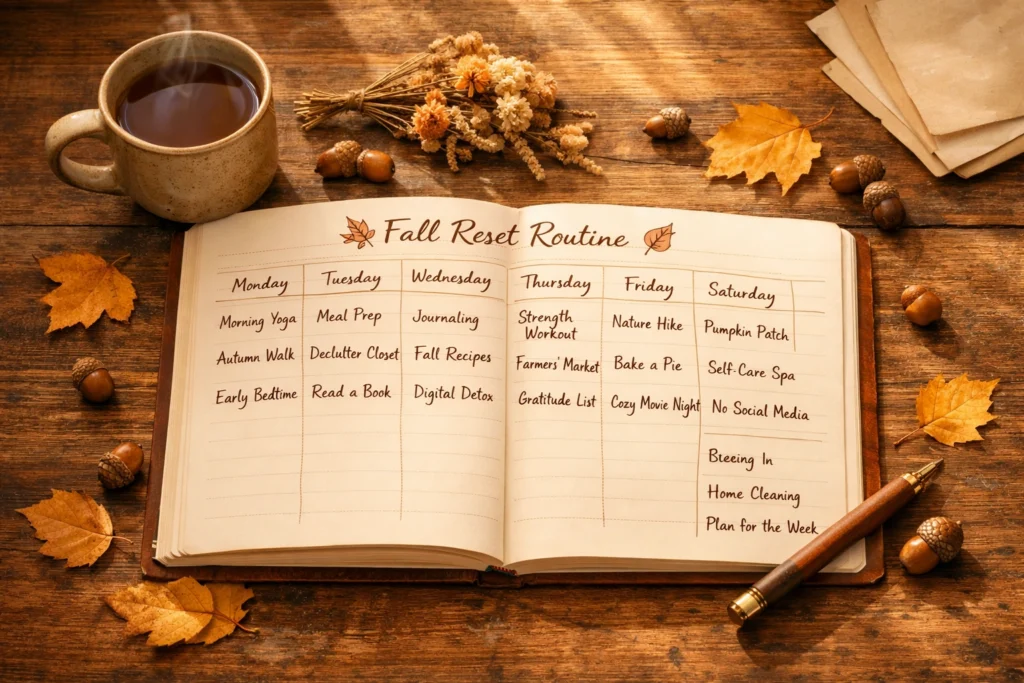 Fall Reset Routine
Monday Tuesday Wednesday Thursday Friday Saturday
Morning Yoga Meal Prep Journaling Strength Workout Nature Hike Pumpkin Patch
Autumn Walk Declutter Closet Fall Recipes Farmers' Market Bake a Pie Self-Care Spa
Early Bedtime Read a Book Digital Detox Gratitude List Cozy Movie Night No Social Media
Breeing In
Home Cleaning
Plan for the Week